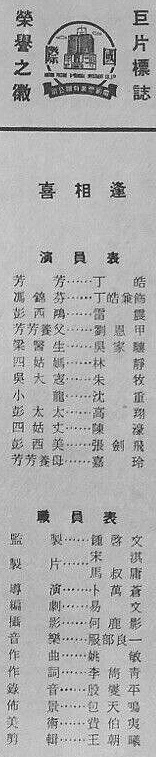 巨片標誌
榮譽之徽
國際
喜相逢
演員表
芳芳 丁皓
馮錦芬 丁皓兼飾
彭西鴻 雷震
芳芳養父 劉恩甲
梁醫生 吳家驤
四姑媽 林靜
吳大寇 朱牧
小龍 沈重
彭太太 高翔
四姑丈 陳濠
彭西美 張劍飛
芳芳養母 嘉玲
職員表
監製 鍾啓文
製片 宋淇
馬叔庸
導演 卜萬蒼
編劇 易文
攝影 何鹿影
音樂 服部良一
作曲 姚敏
作詞 李雋青
錄音 殷燮平
佈景 包天鳴
美術 費伯夷
剪輯 王朝曦